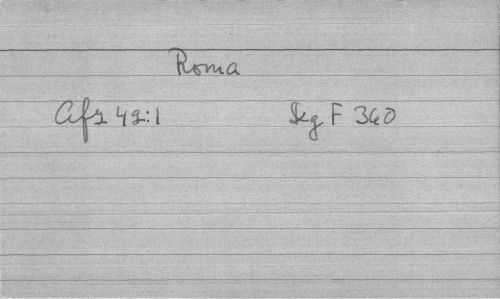 Roma
Afz 42:1 Skg F 360